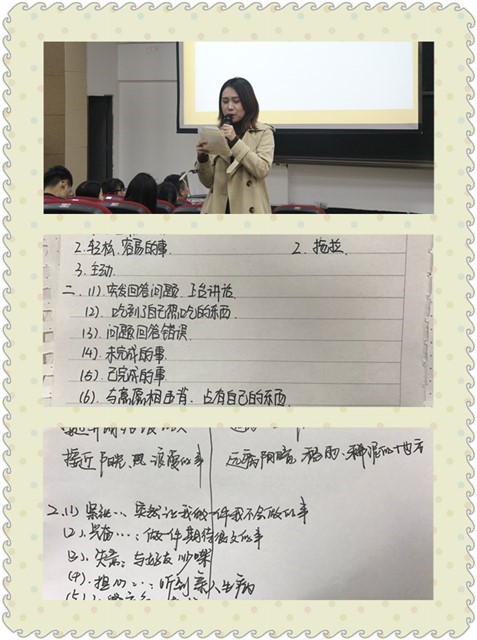 2. 轻松、容易的事 2. 拖拉
3. 主动
二、(1). 突发回答问题、上台讲话
(2). 吃到了自己想吃的东西
(3). 问题回答错误
(4). 未完成的事
(5). 已完成的事
(6). 与意愿相违背、占有自己的东西
接近阳光、照 浪漫的事 远离阴暗、稀泥的地方
2. (1) 紧张… 突然让我做一件我不会做的事
(2) 兴奋…: 做一件期待很久的事
(3) 失意: 与好友吵架
(4) 担心…: 听到亲人生病
(5)